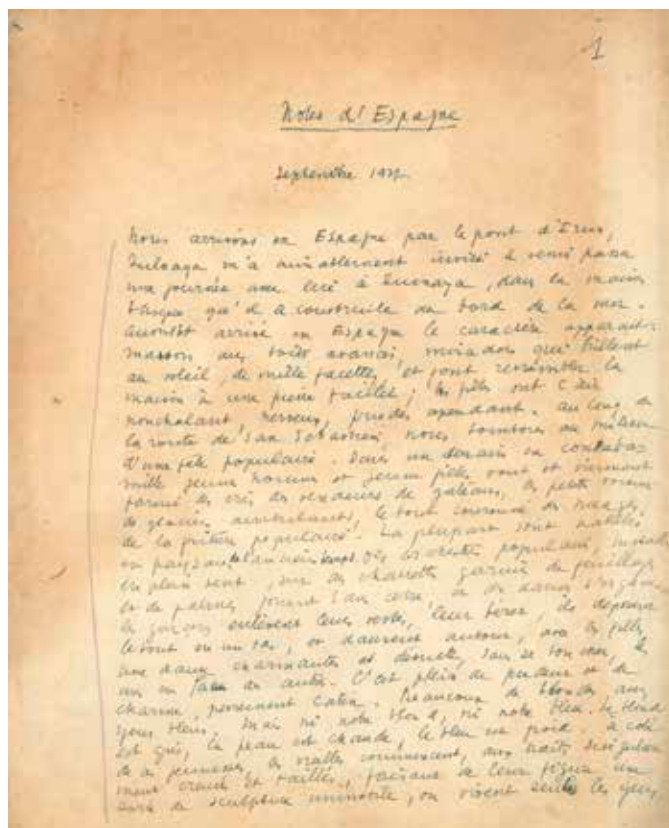 1
Notes d'Espagne
Septembre
Nous arrivons en Espagne par le pont d'Irun,
Zuloaga m'a aimablement invité à venir passer
une journée avec lui à Zumaya, dans la maison
basque qu'il a construite au bord de la mer.
Aussitôt arrivé en Espagne le caractère apparaît :
maisons aux toits avancés, miradors qui brillent
au soleil, de mille facettes, et font ressembler la
maison à une pierre taillée ; les filles ont l'air
nonchalant, nerveux, cependant. Au long de
la route de San Sebastian, nous tombons au milieu
d'une fête populaire. Dans un terrain en contrebas
mille jeunes hommes et jeunes filles vont et viennent
parmi les cris des vendeurs de gâteaux, les petites voitures
de glaciers ambulants, le tout couronné des nuages
de la friture populaire. La plupart sont habillés
en paysans Des orchestres populaires,
en plein vent, sur des charrettes garnies de feuillage
et de palmes jouent
les garçons enlèvent leurs vestes, leur béret, les déposent
le tout en un tas, et dansent autour, avec les filles
une danse charmante et discrète, sans se toucher, les
uns en face des autres. C'est plein de pudeur et de
charme, purement Beaucoup de blondes aux
yeux bleus. Mais ni notre blond, ni notre bleu. Le blond
est gris, la peau est chaude, le bleu est froid. à côté
de ces jeunesses, les vieilles commencent, aux traits
creusés et taillés, faisant de leur figure une
sculpture immobile, où vivent seuls les yeux,